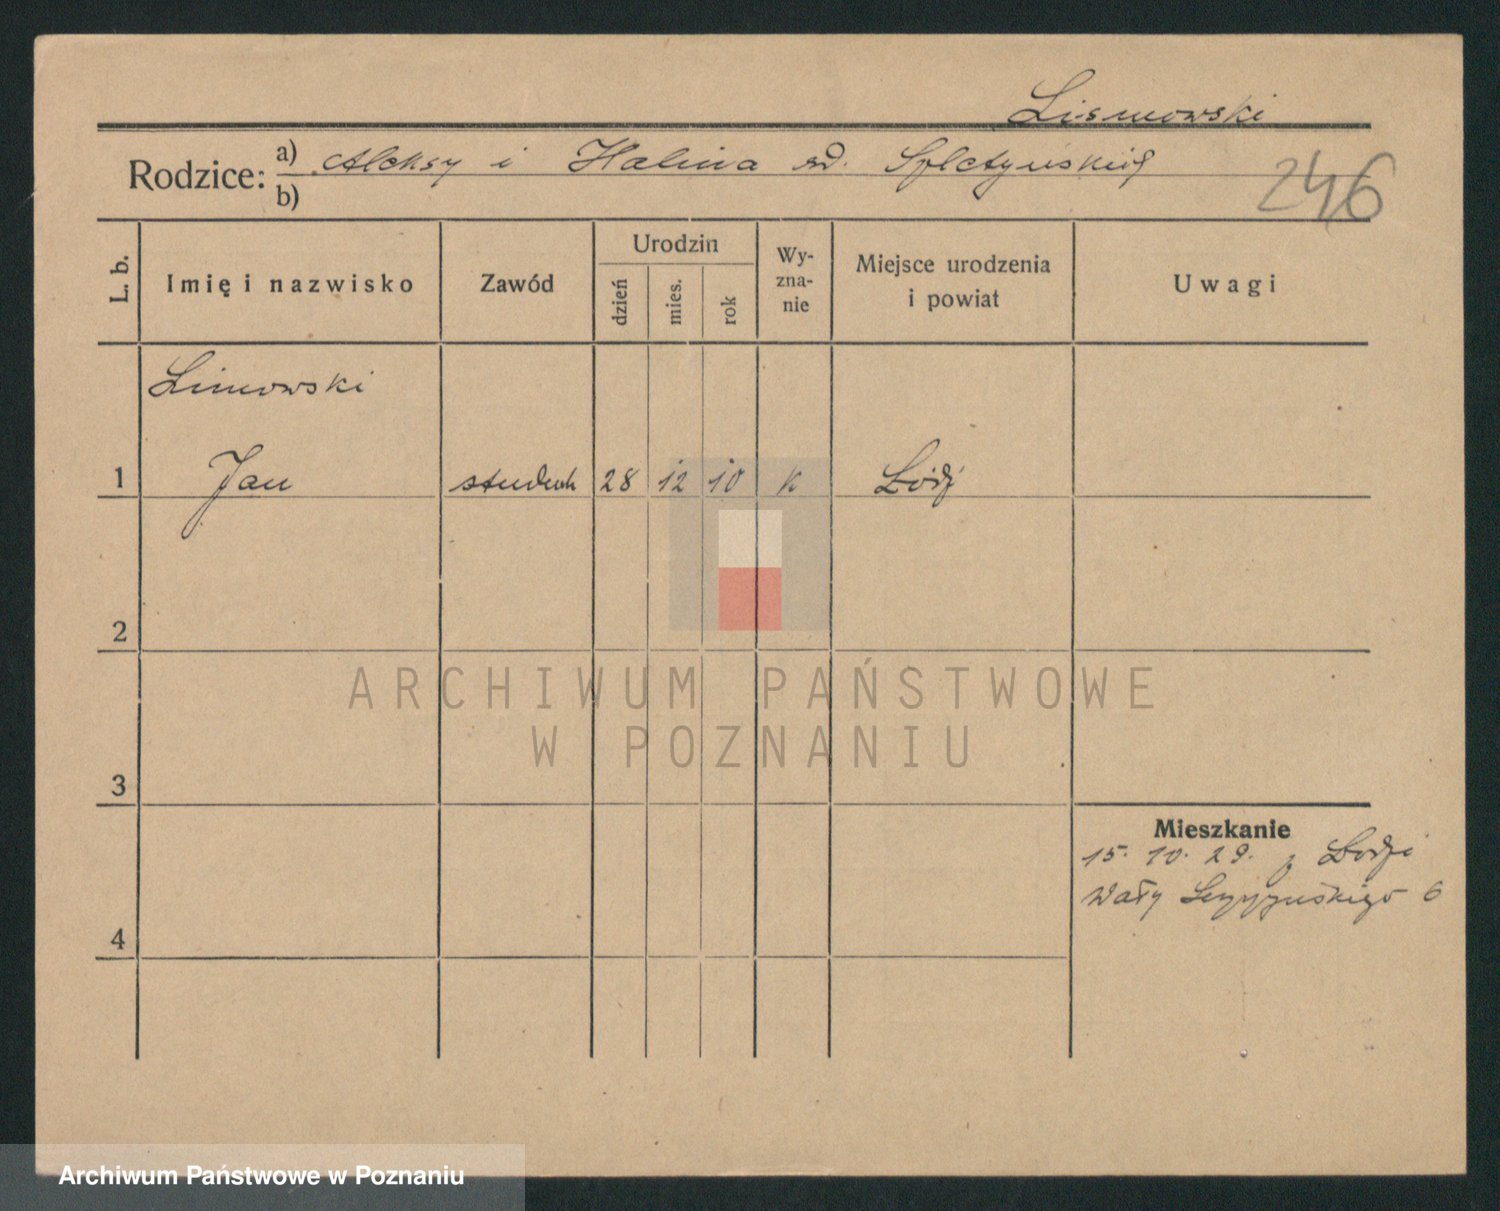 Lismowski
Rodzice: a) Aleksy i Halina
b)
246
L. b.
Imię i nazwisko
Zawód
Urodzin
dzień
mies.
rok
Wy-
zna-
nie
Miejsce urodzenia
i powiat
Uwagi
Limowski
1 Jan student 28 12 10 k Łódź
2
3
4
Mieszkanie
15. 10. 29. z Łodzi
Wały 6
ARCHIWUM PAŃSTWOWE
W POZNANIU
Archiwum Państwowe w Poznaniu